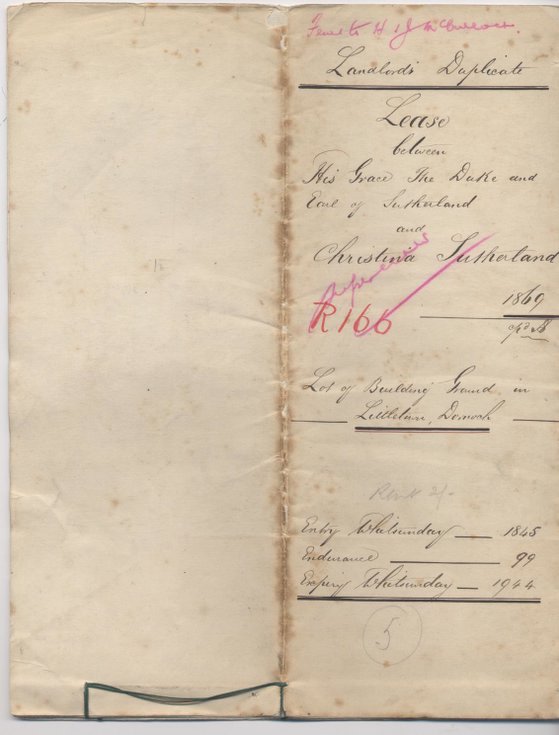 Feued to H & J McCulloch.
Landlord's Duplicate
Lease
between
His Grace The Duke and
Earl of Sutherland
and
Christina Sutherland
1869
R166
Lot of Building Ground in
Littletown, Dornoch
Rent 2/-
Entry Whitsunday — 1845
Endurance — 99
Expiry Whitsunday — 1944
5